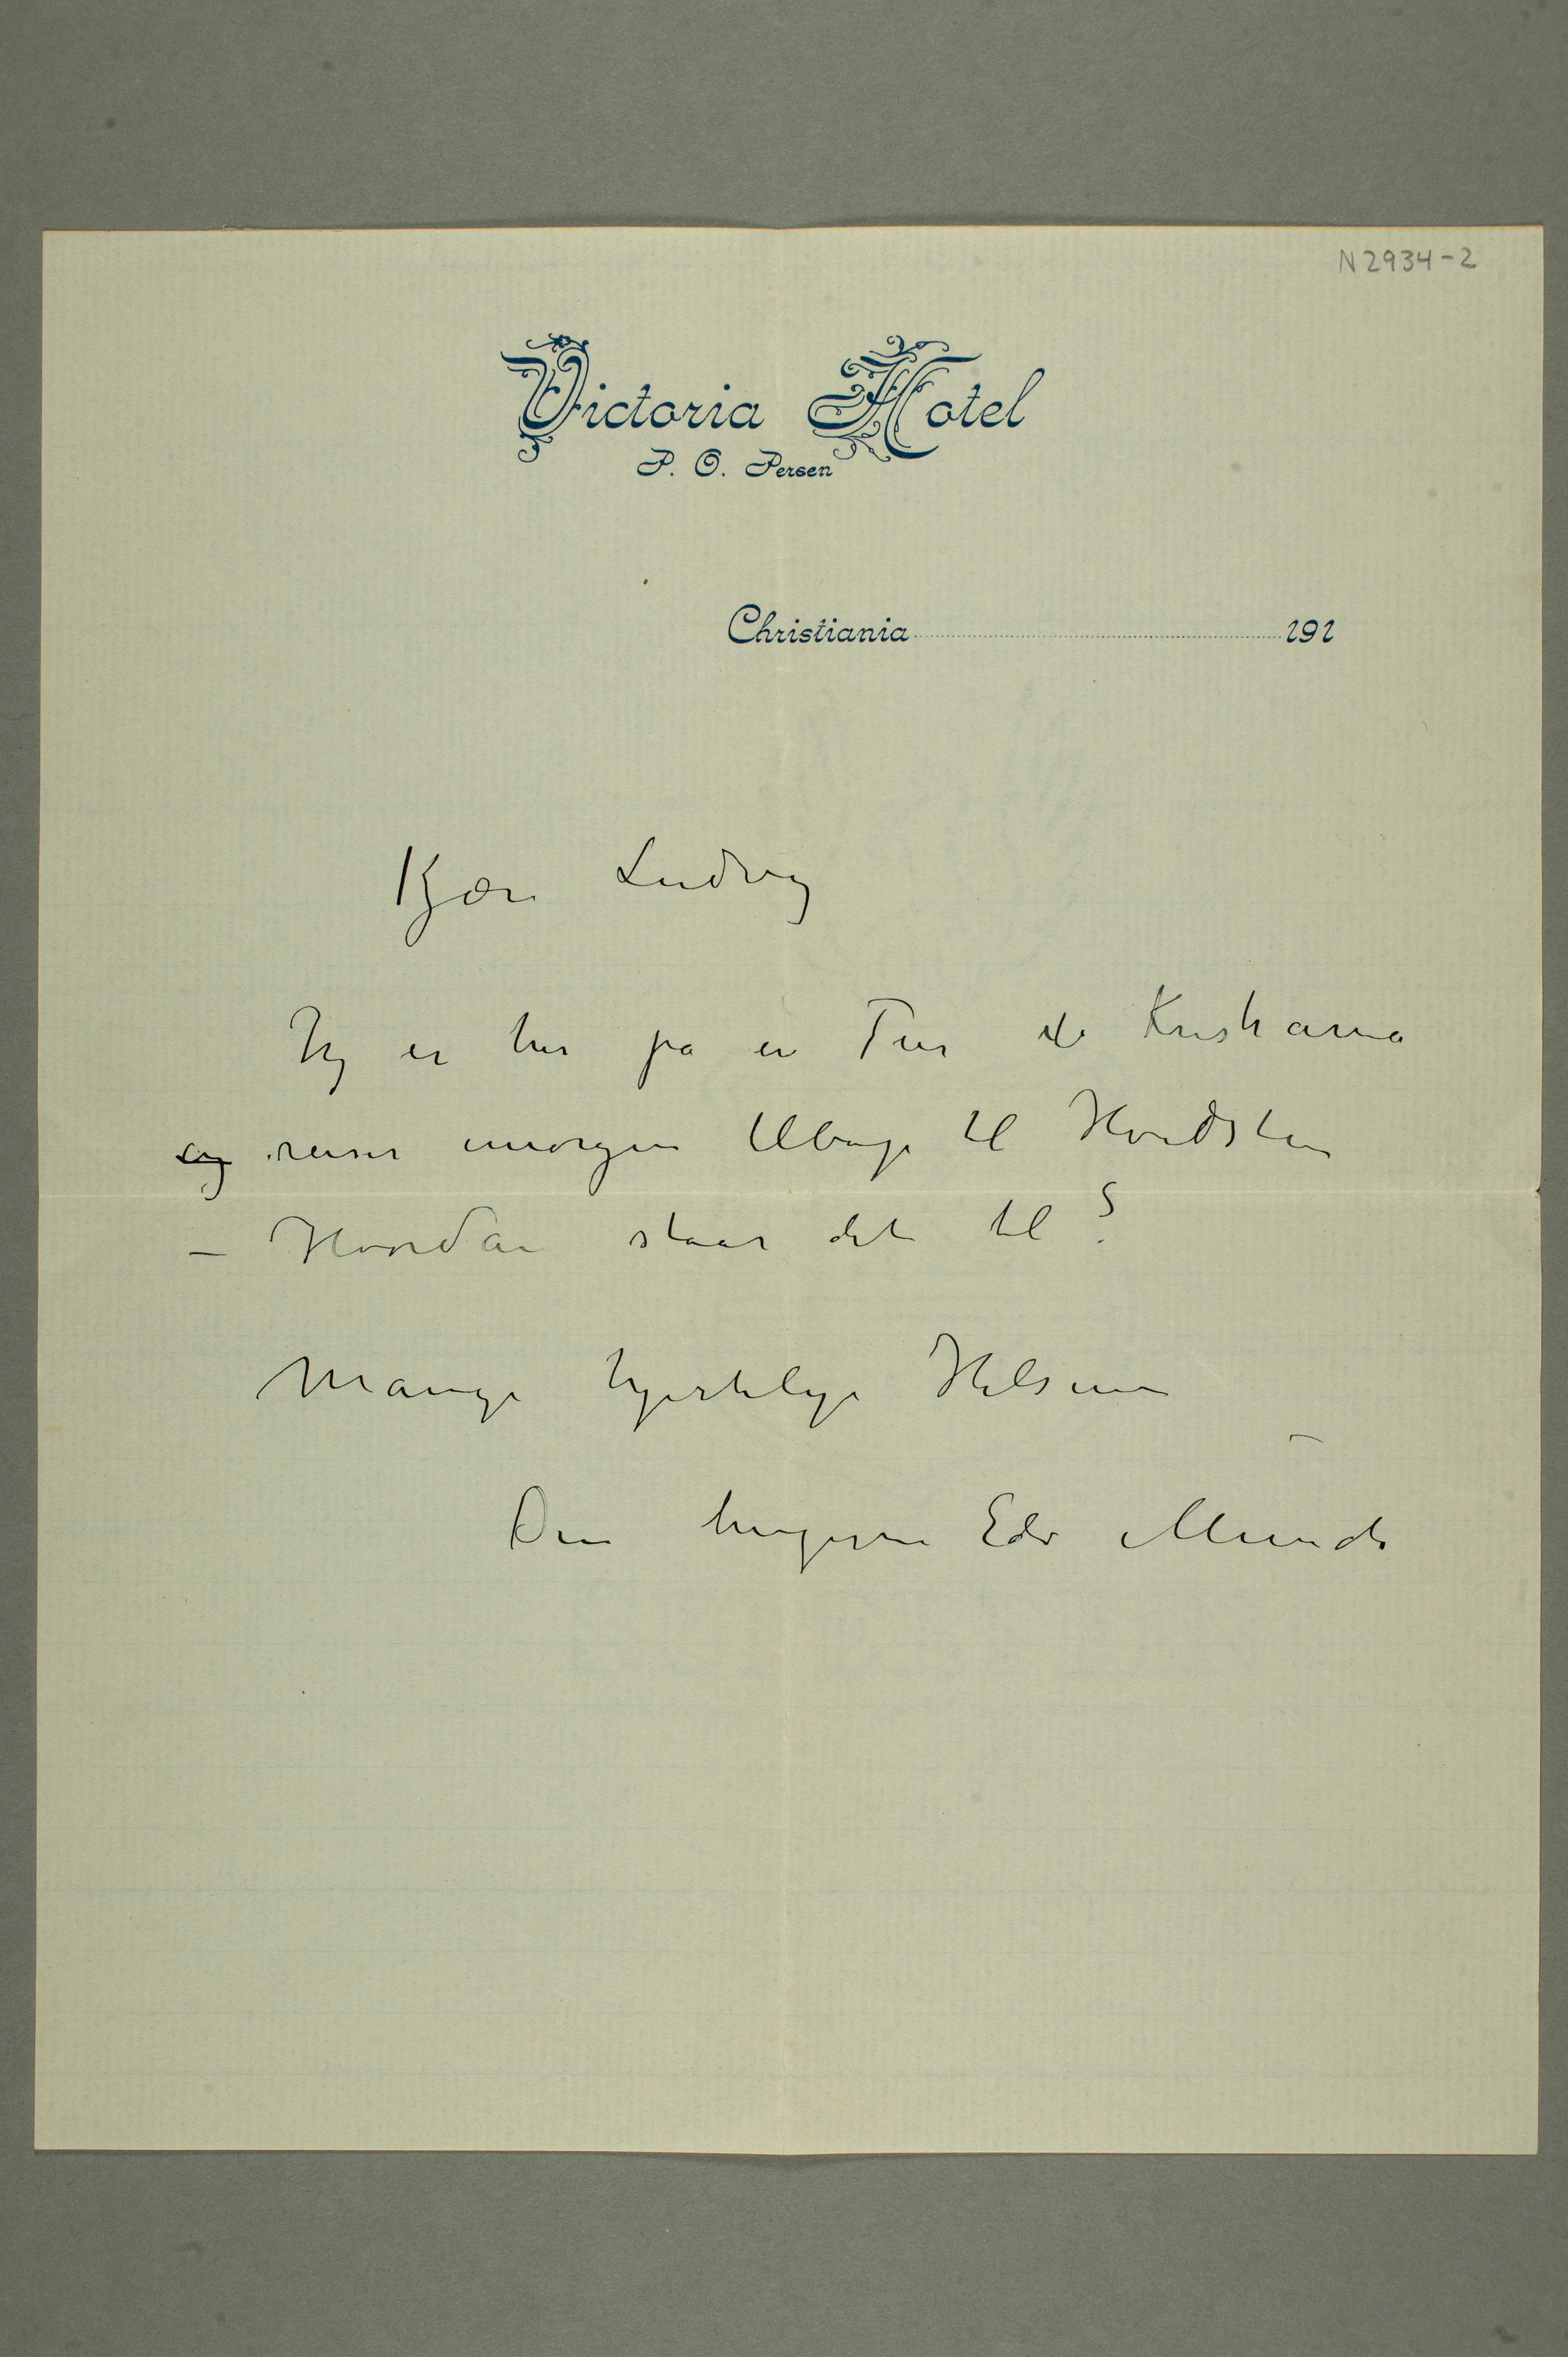 N 2934-2
Victoria Hotel
P. O. Persen
Christiania 191
Kjære Ludvig
Jeg er her på en Tur i Kristiania
og reiser imorgen tilbage til Hvidsten
– Hvordan staar det til?
Mange hjertelige Hilsener
Din hengivne Edv Munch